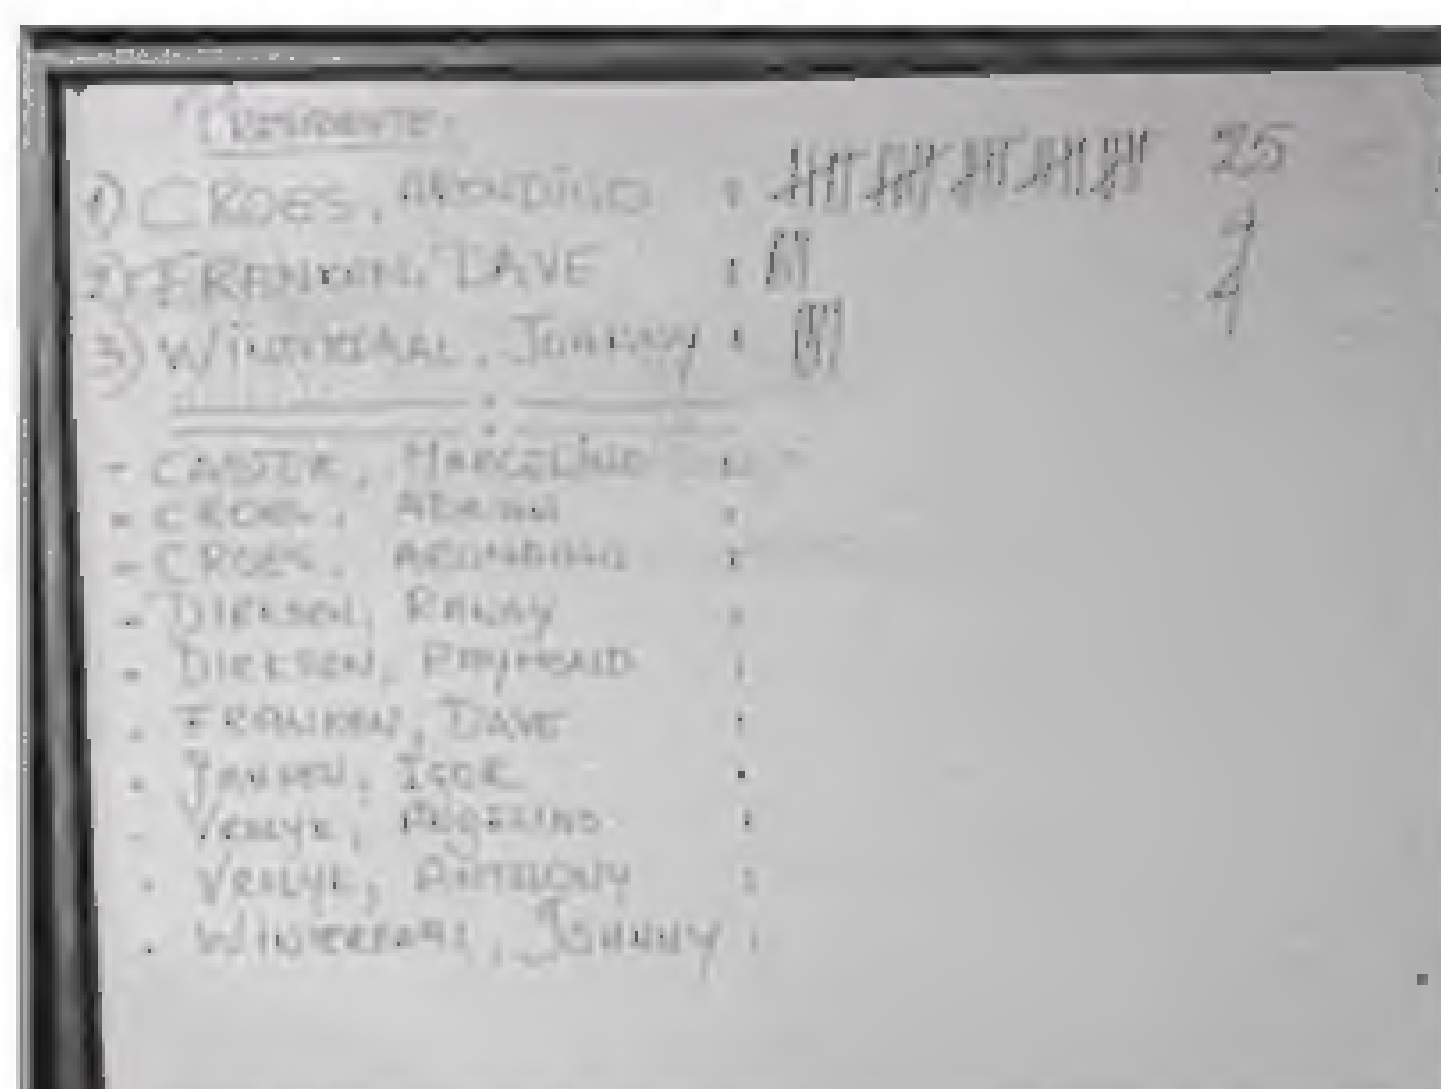 PRESIDENTE.
1) CROES, ARONDINO : 25
2) FRANKEN, DAVE :
3) WINTERDAAL, JOHNNY : 4
- MARCELINO :
- CROES, ADRIAN :
- CROES, ARONDINO :
- DIRKSEN, RANDY :
- DIRKSEN, RAYMOND :
- FRANKEN, DAVE :
- JANSEN, IGOR :
- VROLYK, ANGELINO :
- VROLYK, ANTHONY :
- WINTERDAAL, JOHNNY :